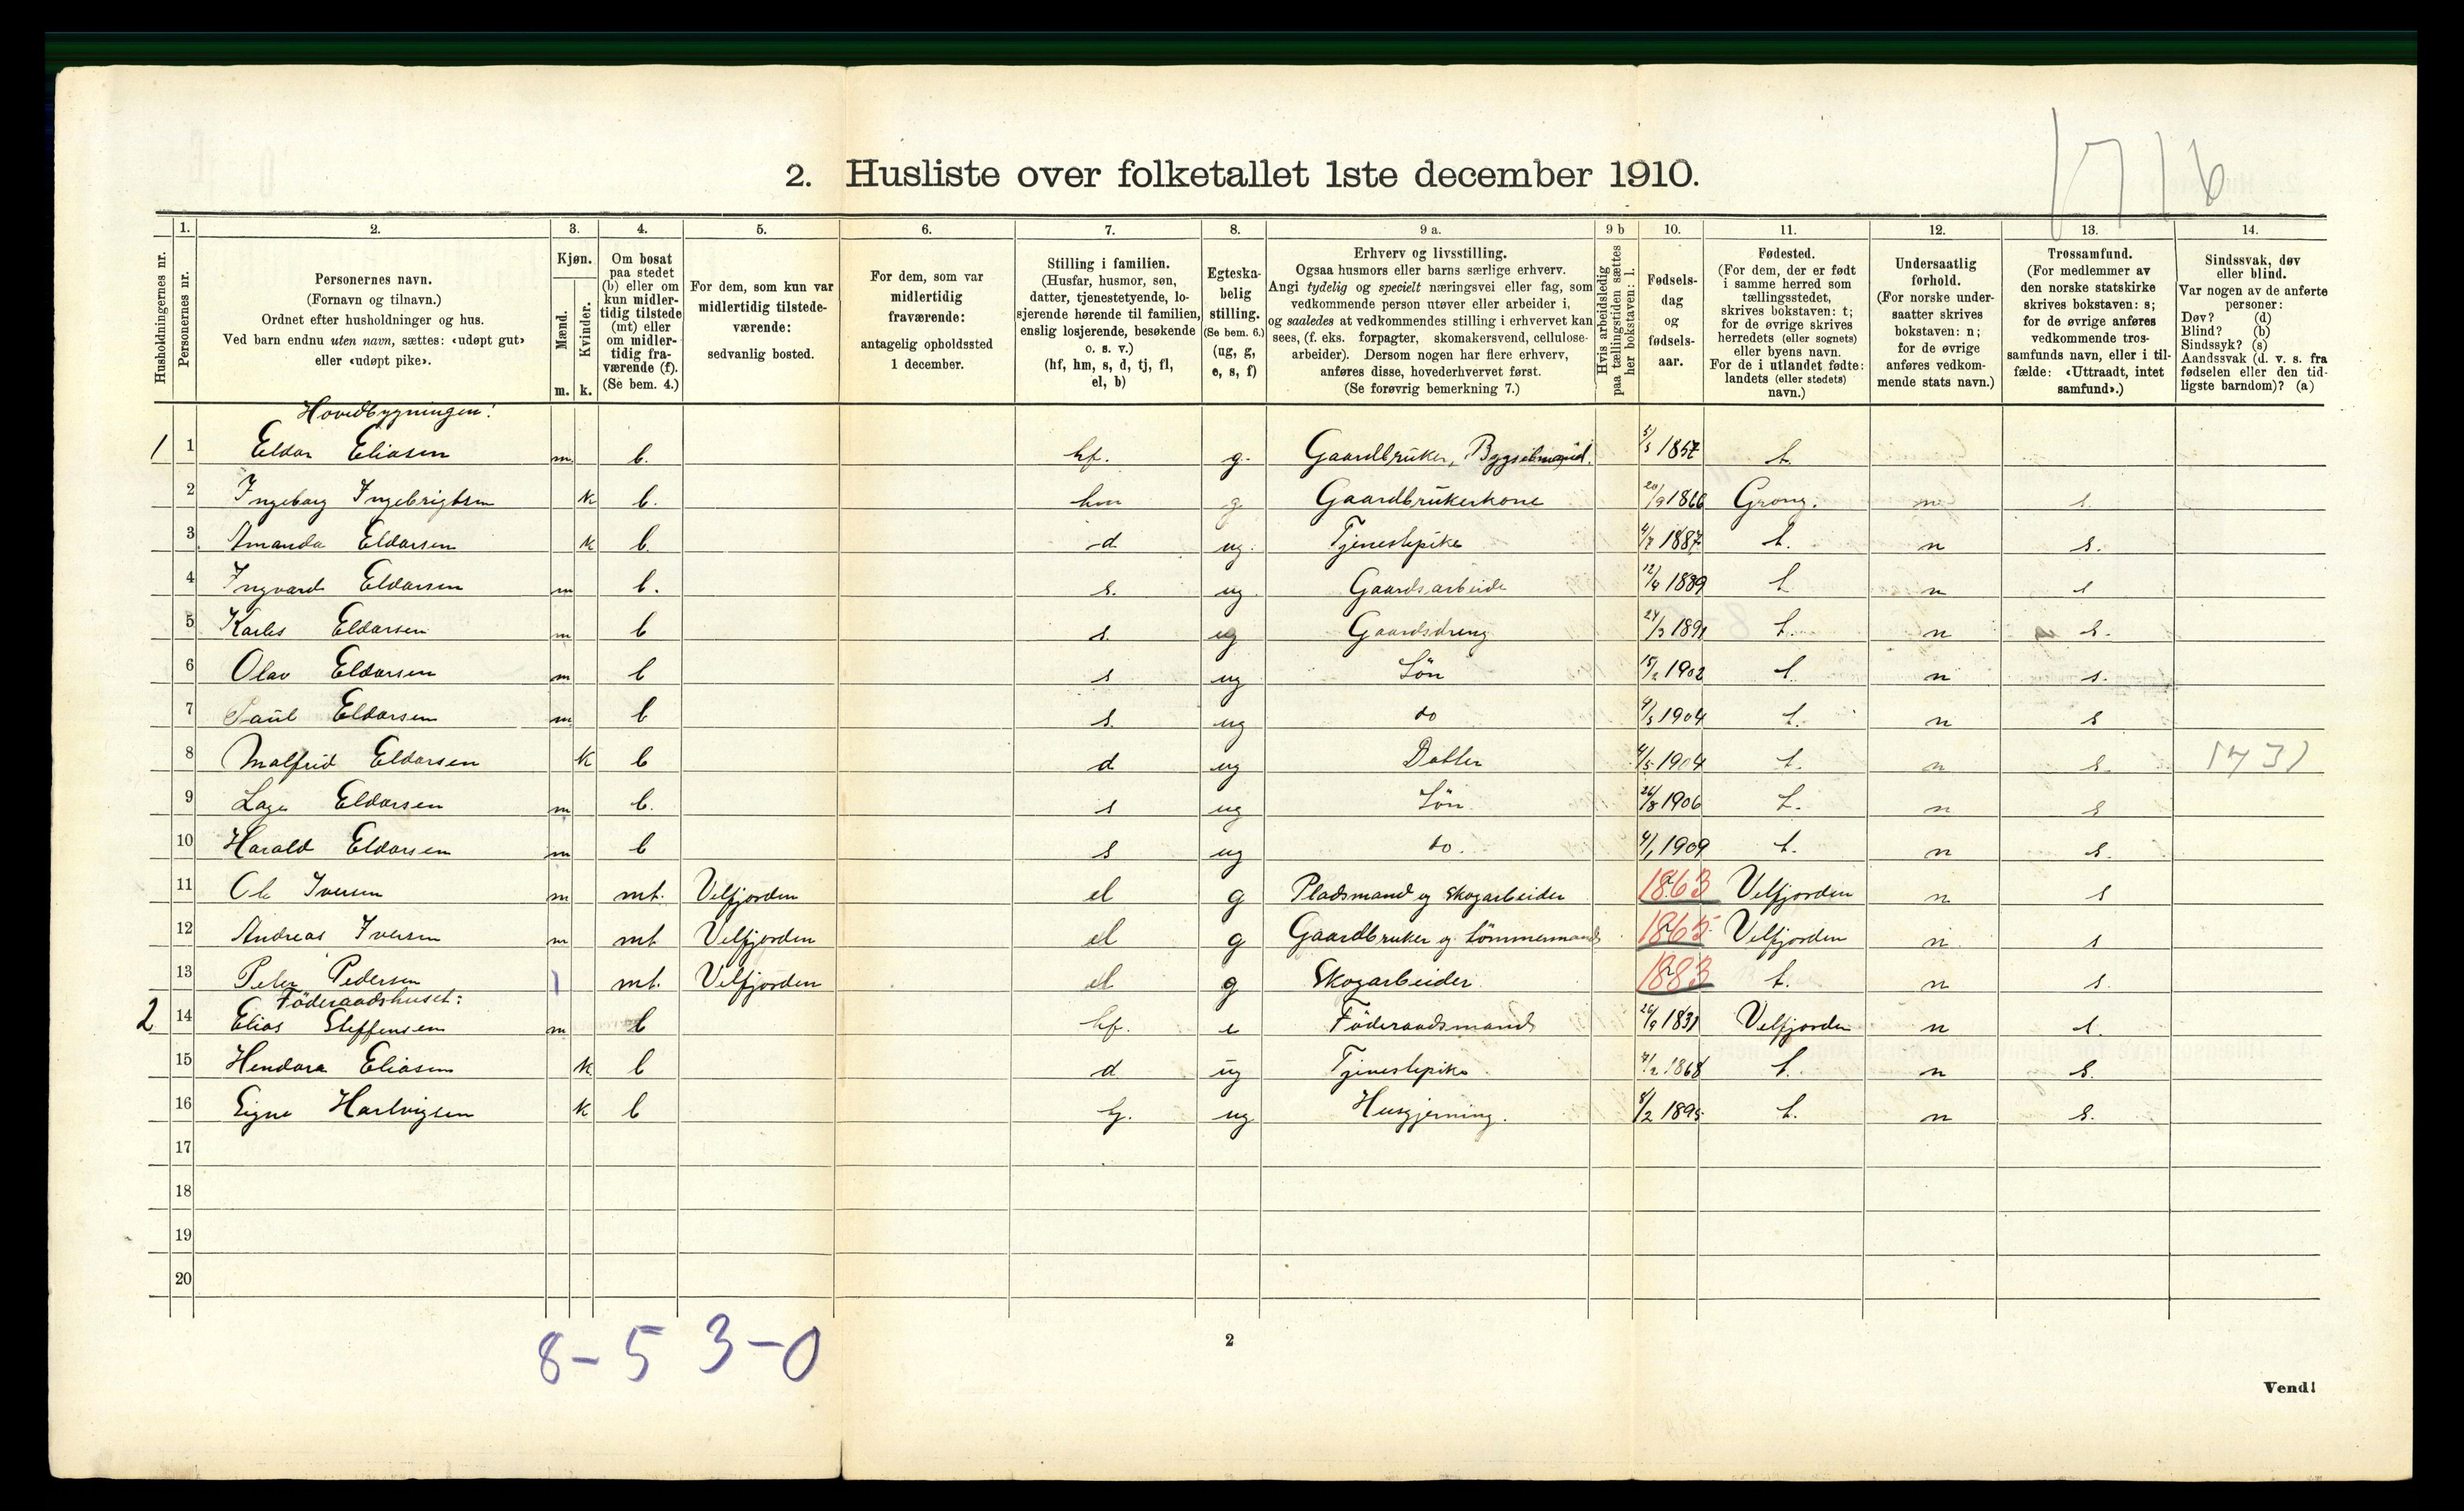 1716
2. Husliste over folketallet 1ste december 1910.
Husholdningernes nr.
1.
Personernes nr.
2.
Personernes navn.
(Fornavn og tilnavn.)
Ordnet efter husholdninger og hus.
Ved barn endnu uten navn, sættes: «udøpt gut»
eller «udøpt pike».
3.
Kjøn.
Mænd.
Kvinder.
m. k.
4.
Om bosat
paa stedet
(b) eller om
kun midler-
tidig tilstede
(mt) eller
om midler-
tidig fra-
værende (f).
(Se bem. 4.)
5.
For dem, som kun var
midlertidig tilstede-
værende:
sedvanlig bosted.
6.
For dem, som var
midlertidig
fraværende:
antagelig opholdssted
1 december.
7.
Stilling i familien.
(Husfar, husmor, søn,
datter, tjenestetyende, lo-
sjerende hørende til familien,
enslig losjerende, besøkende
o. s. v.)
(hf, hm, s, d, tj, fl,
el, b)
8.
Egteska-
belig
stilling.
(Se bem. 6.)
(ug, g,
e, s, f)
9 a.
Erhverv og livsstilling.
Ogsaa husmors eller barns særlige erhverv.
Angi tydelig og specielt næringsvei eller fag, som
vedkommende person utøver eller arbeider i,
og saaledes at vedkommendes stilling i erhvervet kan
sees, (f. eks. forpagter, skomakersvend, cellulose-
arbeider). Dersom nogen har flere erhverv,
anføres disse, hovederhvervet først.
(Se forøvrig bemerkning 7.)
9 b
Hvis arbeidsledig
paa tællingstiden sættes
her bokstaven: l.
10.
Fødsels-
dag
og
fødsels-
aar.
11.
Fødested.
(For dem, der er født
i samme herred som
tællingsstedet,
skrives bokstaven: t;
for de øvrige skrives
herredets (eller sognets)
eller byens navn.
For de i utlandet fødte:
landets (eller stedets)
navn.)
12.
Undersaatlig
forhold.
(For norske under-
saatter skrives
bokstaven: n;
for de øvrige
anføres vedkom-
mende stats navn.)
13.
Trossamfund.
(For medlemmer av
den norske statskirke
skrives bokstaven: s;
for de øvrige anføres
vedkommende tros-
samfunds navn, eller i til-
fælde: «Uttraadt, intet
samfund».)
14.
Sindssvak, døv
eller blind.
Var nogen av de anførte
personer:
Døv? (d)
Blind? (b)
Sindssyk? (s)
Aandssvak (d. v. s. fra
fødselen eller den tid-
ligste barndom)? (a)
Hovedbygningen:
1 1 Eldar Eliasen m b. hf. g. Gaardbruker, Bygselmand. 5/5 1857 t.
2 Ingeborg Ingebrigtsen k b. hm g Gaardbrukerkone 20/9 1866 Grong. n s.
3 Amanda Eldarsen k b. d ug. Tjenestepike 4/7 1887 t. n s.
4 Ingvard Eldarsen m b. s. ug Gaardsarbeide 12/4 1889 t n s
5 Karles Eldarsen m b s. ug Gaardsdreng 24/3 1891 t. n s.
6 Olav Eldarsen m b s ug Sön 15/2 1902 t n s.
7 Paul Eldarsen m b s. ug do 4/5 1904 t. n s
8 Malfrid Eldarsen k b d ug Datter 4/5 1904 t. n s.
9 Lage Eldarsen m b. s ug Sön 26/8 1906 t. n s
10 Harald Eldarsen m b s ug do. 4/1 1909 t. n s.
11 Ole Iversen m mt. Velfjorden el g Pladsmand og Skogarbeider 1863 Velfjorden n s
12 Andreas Iversen m mt Velfjorden el g Gaardbruker og tömmermand 1865 Velfjorden n s
13 Peter Pedersen 1 mt. Velfjorden el g Skogarbeider 1883 t. n s.
Föderaadshuset:
2 14 Elias Steffensen m b hf. e Föderaadsmand 26/9 1831 Velfjorden n s.
15 Hendara Eliasen k b d ug Tjenestepike 7/2 1868 t. n s.
16 Signe Hartvigsen k b tj. ug Husgjerning. 8/2 1895 t. n s.
17
18
19
20
8-5 3-0
2
Vend!